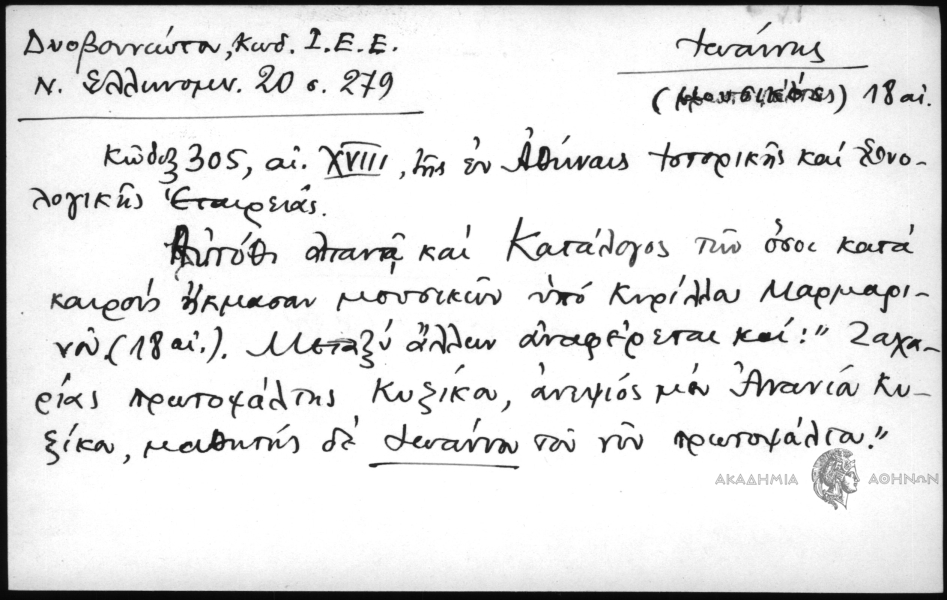 Δυοβουνιώτου, Κωδ. Ι.Ε.Ε.
Ν. Ελληνομν. 20 σ. 279
Ἰωάννης
18 αἰ.
Κῶδιξ 305, αἰ. XVIII, τῆς ἐν Ἀθήναις Ἱστορικῆς καὶ Ἐθνο-
λογικῆς Ἑταιρείας.
Αὐτόθι ἀπαντᾷ καὶ Κατάλογος τῶν ὅσοι κατὰ
καιροὺς ἤκμασαν μουσικῶν ὑπὸ Κυρίλλου Μαρμαρι-
νοῦ (18 αἰ.). Μεταξὺ ἄλλων ἀναφέρεται καί: "Ζαχα-
ρίας πρωτοψάλτης Κυζίκου, ἀνεψιὸς μὲν Ἀνανίου Κυ-
ζίκου, μαθητὴς δὲ Ἰωάννου τοῦ νῦν πρωτοψάλτου."
ΑΚΑΔΗΜΙΑ ΑΘΗΝΩΝ